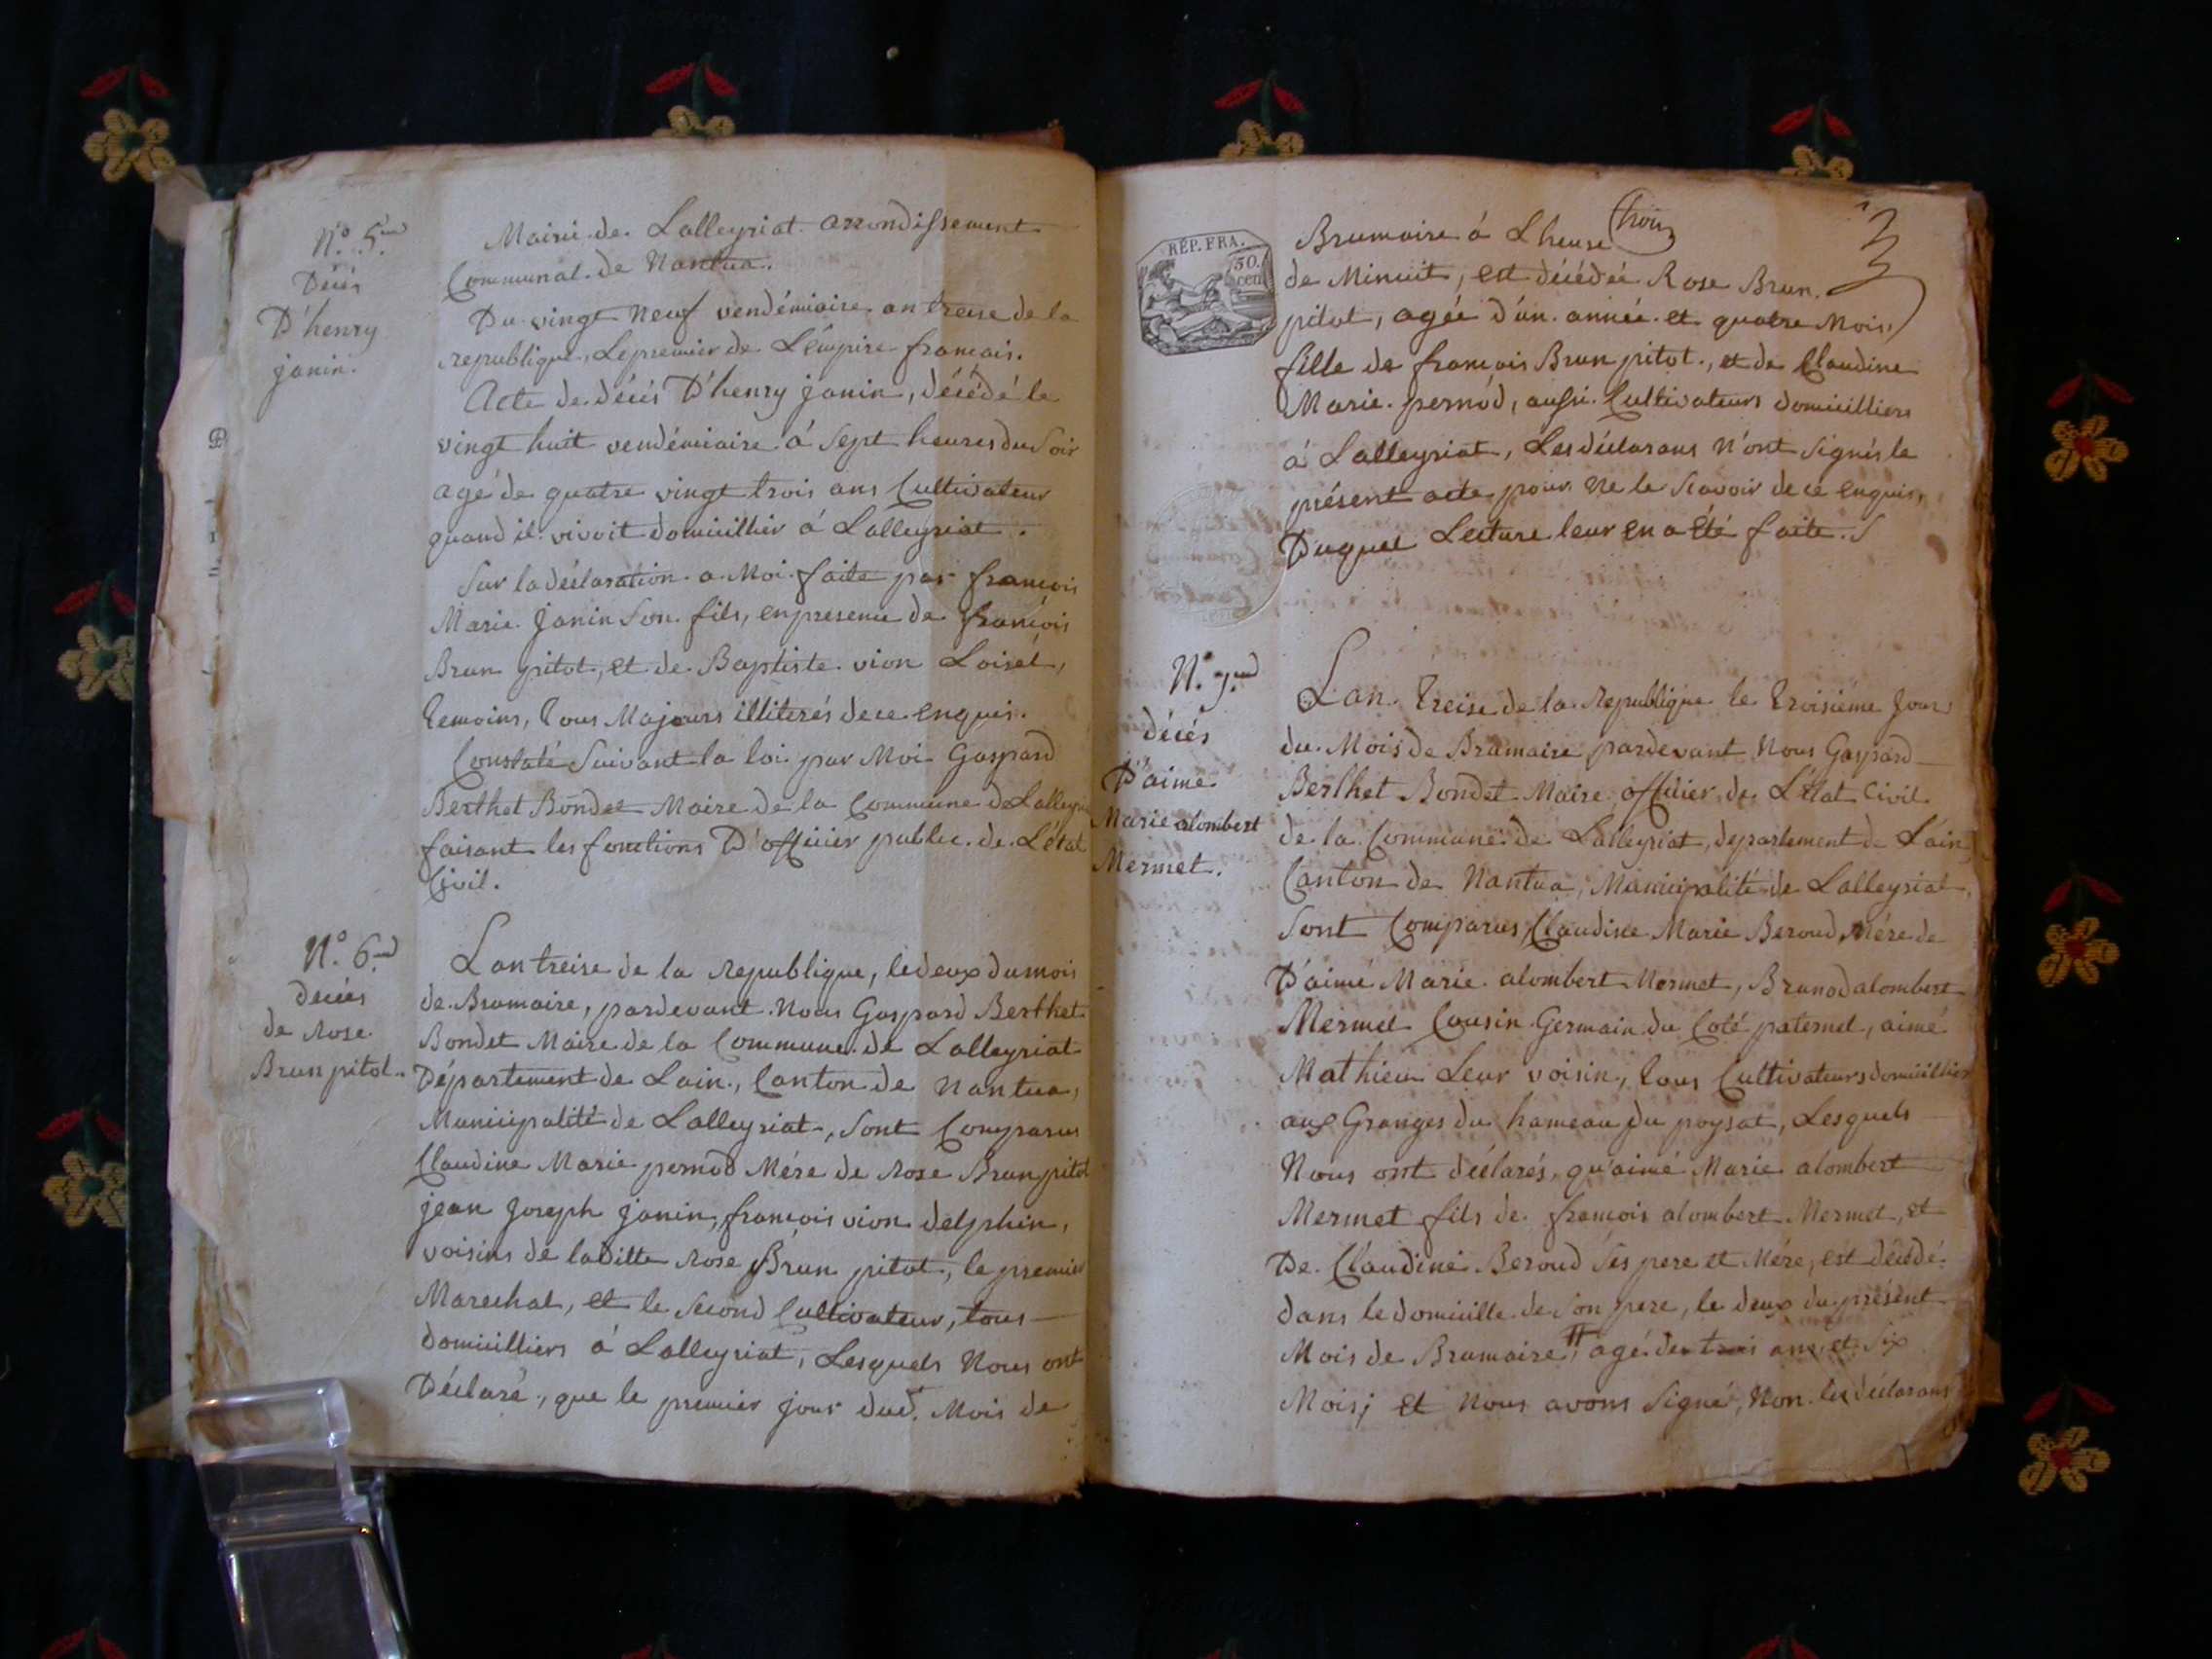 N.o 5.me
Décés
D'henry
janin.
Mairie de Lalleyriat arrondissement
Communal de Nantua.
Du vingt Neuf vendémiaire an treise de la
republique, Le premier de L'émpire francais.
Acte de décés D'henry janin, décédé le
vingt huit vendémiaire á Sept heures du Soir
agé de quatre vingt trois ans Cultivateur
quand il vivoit domicillier á Lalleyriat.
Sur la déclaration a Moi faite par francois
Marie Janin Son fils, en presence de francois
Brun pitot, et de Baptiste vion Loisel,
temoins, tous Majours illiterés de ce enquis.
Constaté Suivant la loi par Moi Gaspard
Berthet Bondet Maire de la Commune de Lalleyria
faisant les fonctions D'officier public de L'état
Civil.
N.o 6.me
decés
de Rose
Brun pitot.
L'an treise de la Republique, le deux du mois
de Brumaire, pardevant Nous Gaspard Berthet
Bondet Maire de la Commune de Lalleyriat
Département de Lain, Canton de Nantua,
Municipalité de Lalleyriat, Sont Comparus
Claudine Marie pernod Mére de Rose Brun pitot
jean Joseph janin, francois vion delphin,
voisins de laditte Rose Brun pitot, le premier
Marechal, et le Second Cultivateur, tous
domicilliers á Lalleyriat, Lesquels Nous ont
Déclaré, que le premier jour dud. Mois de
RÉP. FRA.
50.
cen
trois
3
Brumaire á Lheure
de Minuit, est décédée Rose Brun
pitot, agée d'un année et quatre Mois,
fille de francois Brun pitot, et de Claudine
Marie pernod, aussi Cultivateurs domicilliers
á Lalleyriat, Les déclarans N'ont Signés le
présent acte pour Ne le Scavoir de ce enquis,
Duquel Lecture leur en a été faite.
N.o 7.me
décés
D'aimé
Marie alombert
Mermet.
Lan treise de la Republique le troisiéme Jour
du Mois de Brumaire pardevant Nous Gaspard
Berthet Bondet Maire officier de L'état Civil
de la Commune de Lalleyriat, departement de Lain,
Canton de Nantua, Municipalité de Lalleyriat,
Sont Comparus, Claudine Marie Beroud Mére de
D'aimé Marie alombert Mermet, Brunod alombert
Mermet Cousin Germain du Coté paternel, aimé
Mathieu Leur voisin, tous Cultivateurs domicillier
aux Granges du hameau du poysat, Lesquels
Nous ont déclarés, qu'aimé Marie alombert
Mermet fils de francois alombert Mermet, et
De Claudine Beroud Ses pere et Mére, est décédé
dans le domicille de Son pere, le deux du présent
Mois de Brumaire, agé de trois ans et Six
Mois; et Nous avons Signé, Non les déclarans